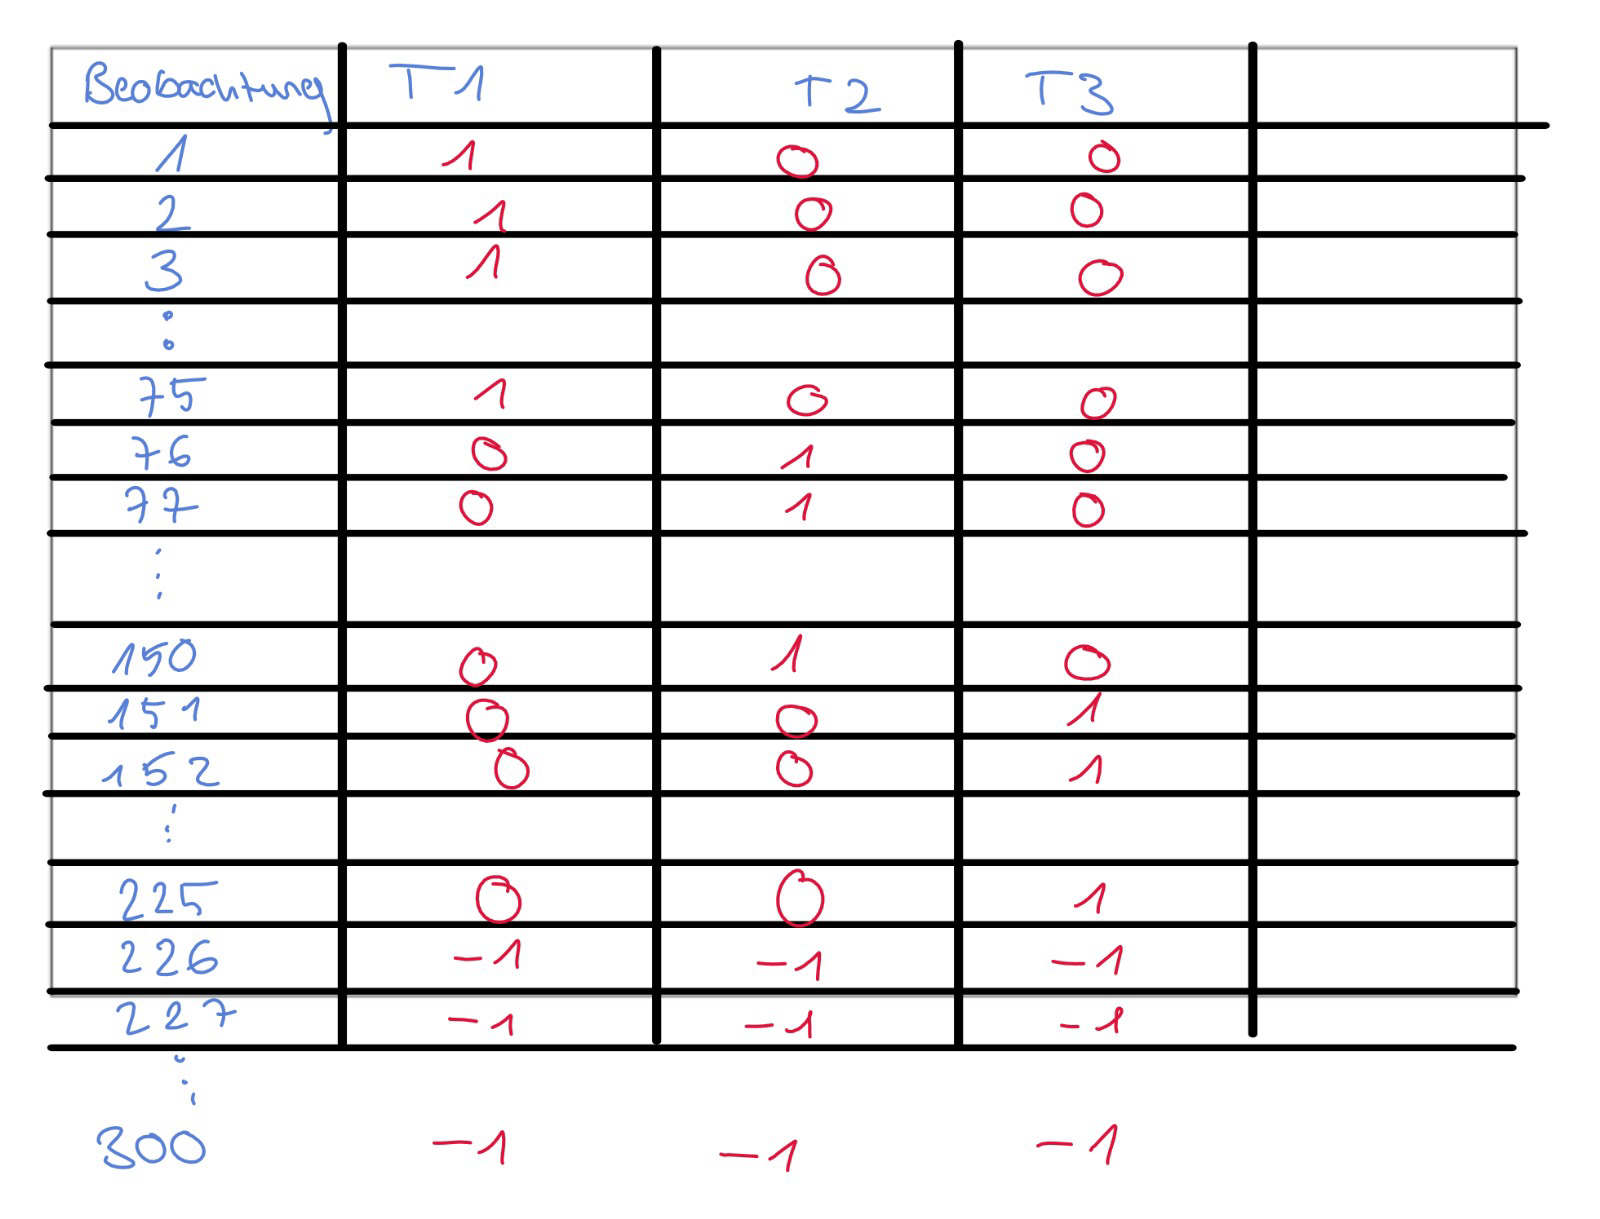 Beobachtung T1 T2 T3
1 1 0 0
2 1 0 0
3 1 0 0
:
75 1 0 0
76 0 1 0
77 0 1 0
⋮
150 0 1 0
151 0 0 1
152 0 0 1
⋮
225 0 0 1
226 -1 -1 -1
227 -1 -1 -1
⋮
300 -1 -1 -1